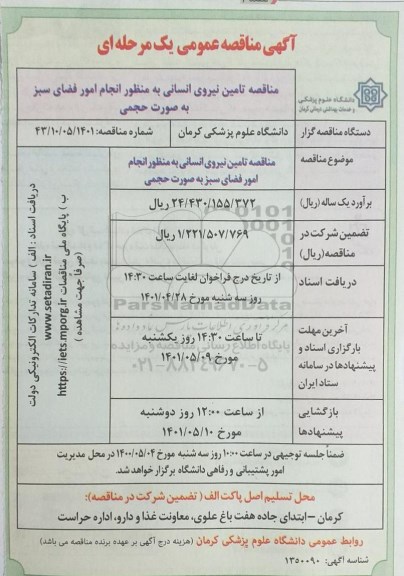 آگهی مناقصه عمومی یک مرحله ای
دانشگاه علوم پزشکی
و خدمات بهداشتی درمانی کرمان
مناقصه تامین نیروی انسانی به منظور انجام امور فضای سبز
به صورت حجمی
دستگاه مناقصه گزار
دانشگاه علوم پزشکی کرمان
شماره مناقصه: ۴۳/۱۰/۰۵/۱۴۰۱
موضوع مناقصه
مناقصه تامین نیروی انسانی به منظور انجام
امور فضای سبز به صورت حجمی
برآورد یک ساله (ریال)
۲۴/۴۳۰/۱۵۵/۳۷۲ ریال
تضمین شرکت در
مناقصه (ریال)
۱/۲۲۱/۵۰۷/۷۶۹ ریال
دریافت اسناد
از تاریخ درج فراخوان لغایت ساعت ۱۴:۳۰
روز سه شنبه مورخ ۱۴۰۱/۰۴/۲۸
آخرین مهلت
بارگزاری اسناد و
پیشنهادها در سامانه
ستاد ایران
تا ساعت ۱۴:۳۰ روز یکشنبه
مورخ ۱۴۰۱/۰۵/۰۹
بازگشایی
پیشنهادها
از ساعت ۱۲:۰۰ روز دوشنبه
مورخ ۱۴۰۱/۰۵/۱۰
دریافت اسناد: الف) سامانه تدارکات الکترونیکی دولت
www.setadiran.ir
ب) پایگاه ملی مناقصات https://iets.mporg.ir
(صرفاً جهت مشاهده)
ParsNamadData
۰۲۱-۸۸۳۴۹۶۷۰-۵
ضمناً جلسه توجیهی در ساعت ۱۰:۰۰ روز سه شنبه مورخ ۱۴۰۰/۰۵/۰۴ در محل مدیریت
امور پشتیبانی و رفاهی دانشگاه برگزار خواهد شد.
محل تسلیم اصل پاکت الف (تضمین شرکت در مناقصه):
کرمان – ابتدای جاده هفت باغ علوی، معاونت غذا و دارو، اداره حراست
روابط عمومی دانشگاه علوم پزشکی کرمان (هزینه درج آگهی بر عهده برنده مناقصه می باشد)
شناسه آگهی: ۱۳۵۰۰۹۰